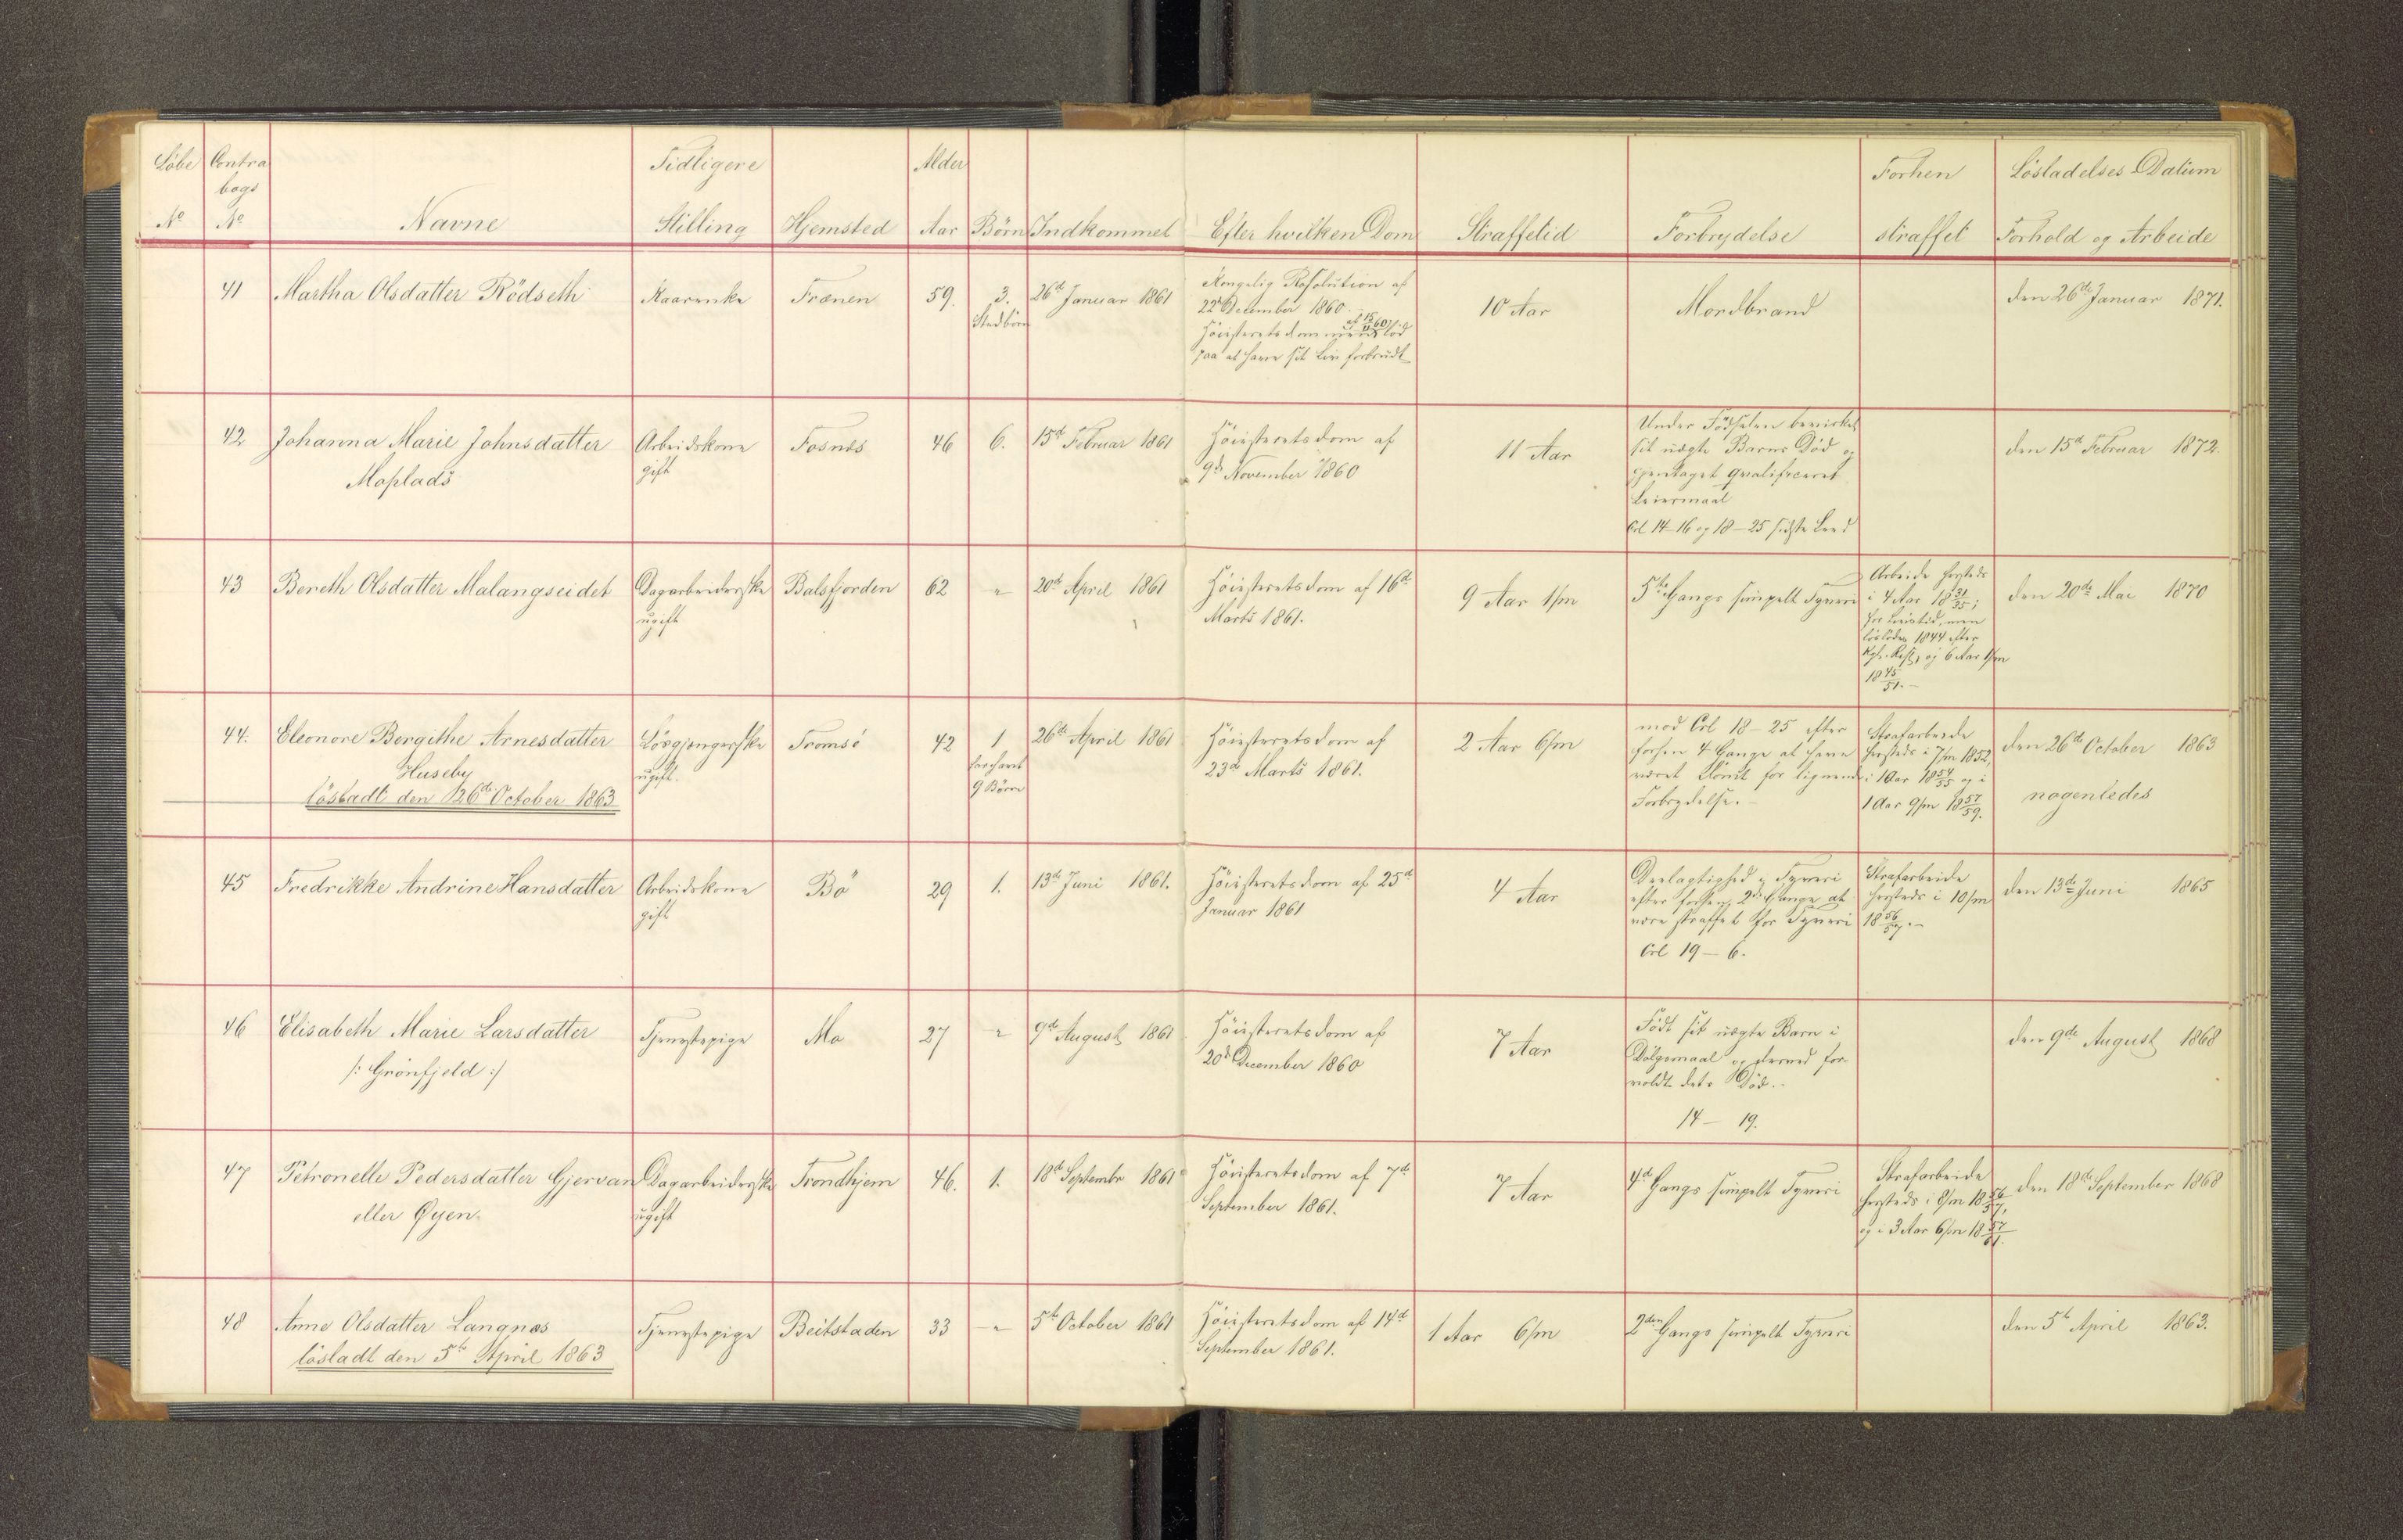 Löbe Contra Tidligere Alder Forhen Lösladelses Datum
bogs
No No Navne Stilling Hjemsted Aar Börn Indkommet Efter hvilken Dom Straffetid Forbrydelse straffet Forhold og Arbeide
41 Martha Olsdatter Rödseth Kaarenke Frænen 59. 3. 26de Januar 1861 Kongelig Resolution af 10 Aar Mordbrand den 26de Januar 1871.
Stedbörn 22de December 1860.
Höiesteretsdom af 15/11 60 lød
paa at have sit Liv forbrudt
42 Johanna Marie Johnsdatter Arbeidskone Fosnæs 46 6. 15de Februar 1861 Höiesteretsdom af 11 Aar Under Födselen bevirket den 15de Februar 1872.
Moplads gift 9de November 1860 sit uægte Barns Död og
gjentaget qvalificeret
Leiermaal
Crl 14-16 og 18-25 sidste Led
43 Bereth Olsdatter Malangseidet Dagarbeiderske Balsfjorden 62 " 20de April 1861 Höiesteretsdom af 16de 9 Aar 1/m 5te Gangs simpelt Tyveri Arbeide hersteds den 20de Mai 1870
ugift Marts 1861. i 4 Aar 18 31/35;
for Livstid, men
löslodes 1844 efter
Kgl. Resl, og 6 Aar 1/m
18 45/51.-
44. Eleonore Bergithe Arnesdatter Lösgjengerske Tromsö 42 1 26de April 1861 Höiesteretsdom af 2 Aar 6/m mod Crl 18-25 efter Strafarbeide den 26de October 1863
Huseby ugift. forhen 23de Marts 1861. forhen 4 Gange at have hersteds i 7/m 1852,
lösladt den 26de October 1863 9 Börn været dömt for lignende i 1 Aar 18 54/55 og i nogenledes
Forbrydelse.- 1 Aar 9/m 18 57/59.
45 Fredrikke Andrine Hansdatter Arbeidskone Bö 29 1. 13de Juni 1861. Höiesteretsdom af 25de 4 Aar Deelagtighed i Tyveri Strafarbeide den 13de Juni 1865
gift Januar 1861 efter forhen 2de Gange at hersteds i 10/m
være straffet for Tyveri 18 56/57.-
Crl 19-6.
46 Elisabeth Marie Larsdatter Tjenestepige Mo 27 " 9de August 1861 Höiesteretsdom af 7 Aar Födt sit uægte Barn i den 9de August 1868
/: Grönfjeld :/ 20de December 1860 Dölgsmaal og derved for-
voldt dets Död.-
14- 19.
47 Petronelle Pedersdatter Gjervan Dagarbeiderske Trondhjem 46. 1. 18de Septembr 1861 Höiesteretsdom af 7de 7 Aar 4de Gangs simpelt Tyveri Strafarbeide den 18de September 1868
eller Öyen. ugift September 1861. hersteds i 8/m 18 56/57,
og i 3 Aar 6/m 18 57/61.
48 Anne Olsdatter Langnæs Tjenestepige Beitstaden 33 " 5te October 1861 Höiesteretsdom af 14de 1 Aar 6/m 2den Gangs simpelt Tyveri den 5te April 1863.
lösladt den 5te April 1863 September 1861.